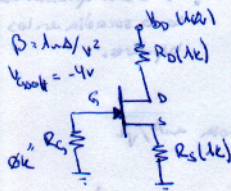 β = 1mA/V²
V_GSoff = -4V
V_DD
R_D (1k)
G
D
S
R_G
R_S (1k)